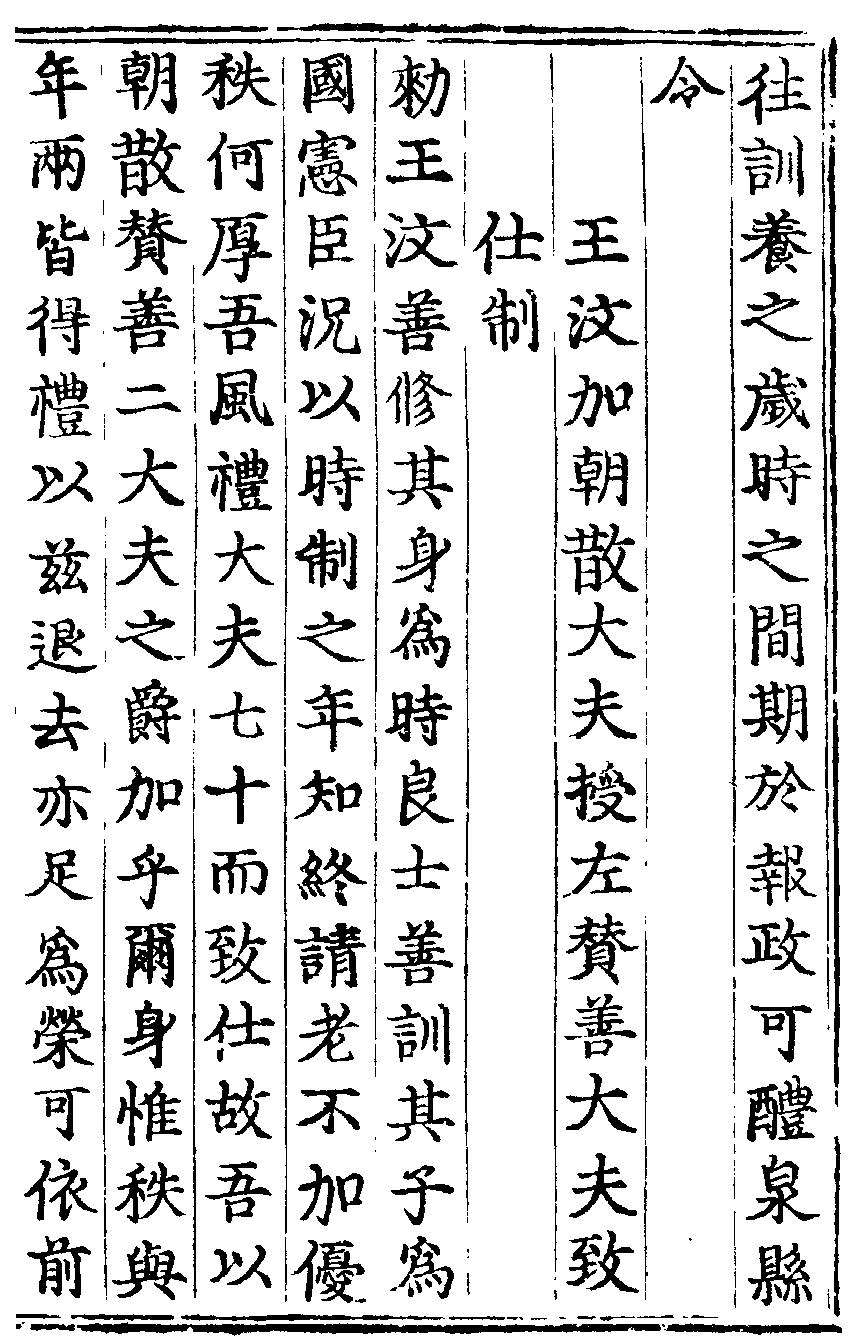 往訓養之歲時之間期於報政可醴泉縣
令
王汶加朝散大夫授左贊善大夫致
仕制
勑王汶善修其身爲時良士善訓其子爲
國憲臣況以時制之年知終請老不加優
秩何厚吾風禮大夫七十而致仕故吾以
朝散贊善二大夫之爵加乎爾身惟秩與
年兩皆得禮以兹退去亦足爲榮可依前